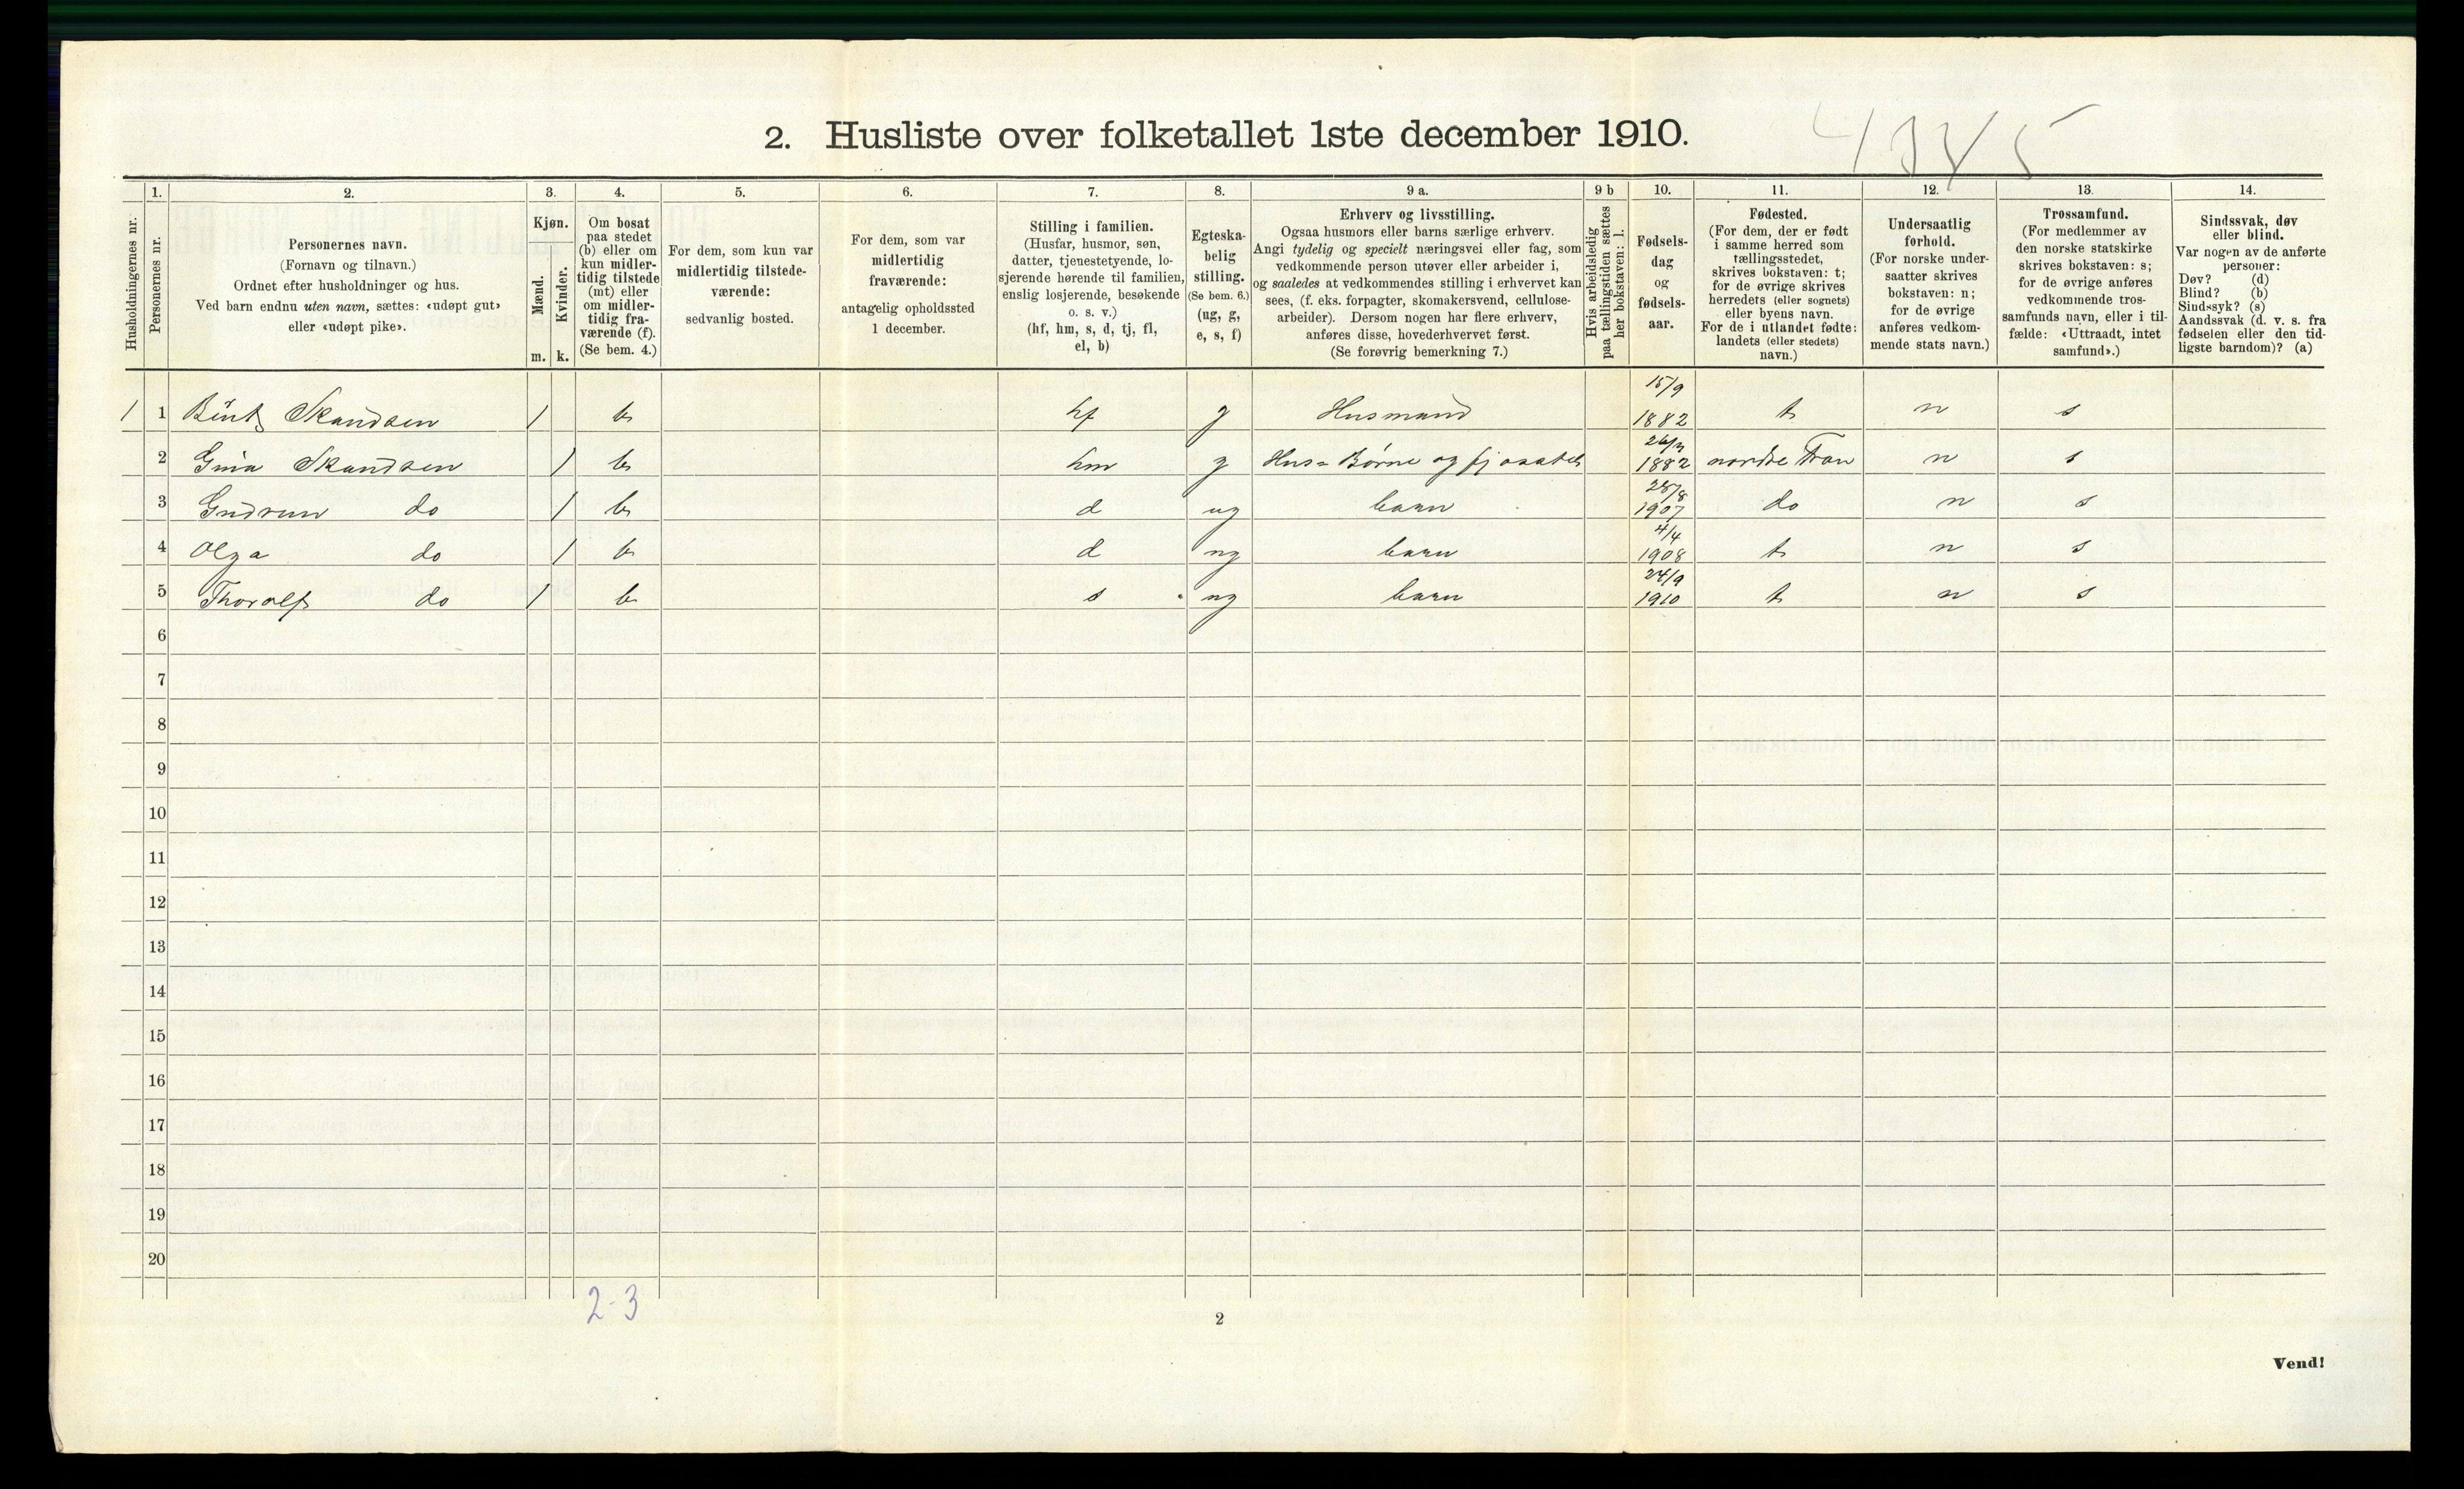 2. Husliste over folketallet 1ste december 1910.
Husholdningernes nr.
1.
Personernes nr.
2.
Personernes navn.
(Fornavn og tilnavn.)
Ordnet efter husholdninger og hus.
Ved barn endnu uten navn, sættes: «udøpt gut»
eller «udøpt pike».
3.
Kjøn.
Mænd.
Kvinder.
m. k.
4.
Om bosat
paa stedet
(b) eller om
kun midler-
tidig tilstede
(mt) eller
om midler-
tidig fra-
værende (f).
(Se bem. 4.)
5.
For dem, som kun var
midlertidig tilstede-
værende:
sedvanlig bosted.
6.
For dem, som var
midlertidig
fraværende:
antagelig opholdssted
1 december.
7.
Stilling i familien.
(Husfar, husmor, søn,
datter, tjenestetyende, lo-
sjerende hørende til familien,
enslig losjerende, besøkende
o. s. v.)
(hf, hm, s, d, tj, fl,
el, b)
8.
Egteska-
belig
stilling.
(Se bem. 6.)
(ug, g,
e, s, f)
9 a.
Erhverv og livsstilling.
Ogsaa husmors eller barns særlige erhverv.
Angi tydelig og specielt næringsvei eller fag, som
vedkommende person utøver eller arbeider i,
og saaledes at vedkommendes stilling i erhvervet kan
sees, (f. eks. forpagter, skomakersvend, cellulose-
arbeider). Dersom nogen har flere erhverv,
anføres disse, hovederhvervet først.
(Se forøvrig bemerkning 7.)
9 b
Hvis arbeidsledig
paa tællingstiden sættes
her bokstaven: l.
10.
Fødsels-
dag
og
fødsels-
aar.
11.
Fødested.
(For dem, der er født
i samme herred som
tællingsstedet,
skrives bokstaven: t;
for de øvrige skrives
herredets (eller sognets)
eller byens navn.
For de i utlandet fødte:
landets (eller stedets)
navn.)
12.
Undersaatlig
forhold.
(For norske under-
saatter skrives
bokstaven: n;
for de øvrige
anføres vedkom-
mende stats navn.)
13.
Trossamfund.
(For medlemmer av
den norske statskirke
skrives bokstaven: s;
for de øvrige anføres
vedkommende tros-
samfunds navn, eller i til-
fælde: «Uttraadt, intet
samfund».)
14.
Sindssvak, døv
eller blind.
Var nogen av de anførte
personer:
Døv? (d)
Blind? (b)
Sindssyk? (s)
Aandssvak (d. v. s. fra
fødselen eller den tid-
ligste barndom)? (a)
1 1 Skandsen 1 b hf g Husmand 15/9 1882 t n s
2 Gina Skandsen 1 b hm g Hus= Børne og 1882 nordre Fron n s
3 Gudrun do 1 b d ug barn 28/8 1907 do n s
4 Olga do 1 b d ug barn 4/4 1908 t n s
5 Thoralf do 1 b s ug barn 24/9 1910 t n s
6
7
8
9
10
11
12
13
14
15
16
17
18
19
20
2-3
2
Vend!